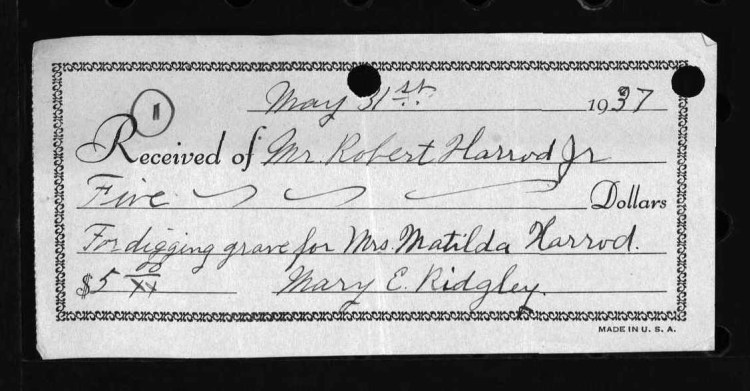 11
May 31st 1937
Received of Mr. Robert Harrod Jr
Five Dollars
For digging grave for Mrs. Matilda Harrod.
$5 00/xx Mary E. Ridgley
MADE IN U. S. A.